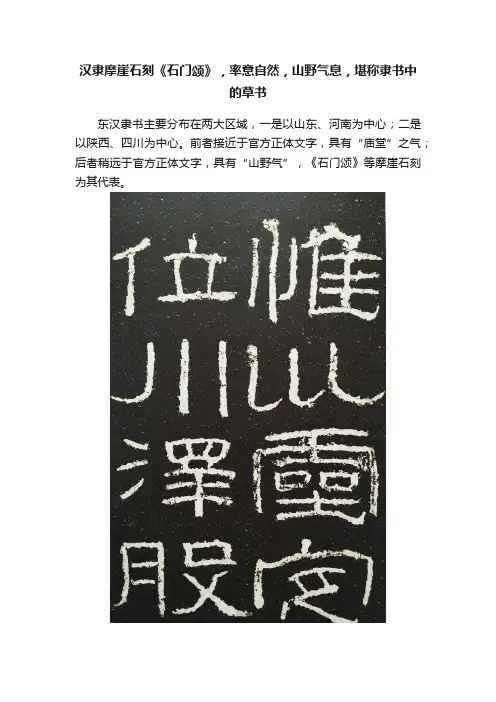 汉隶摩崖石刻《石门颂》，率意自然，山野气息，堪称隶书中
的草书
东汉隶书主要分布在两大区域，一是以山东、河南为中心；二是
以陕西、四川为中心。前者接近于官方正体文字，具有“庙堂”之气；
后者稍远于官方正体文字，具有“山野气”，《石门颂》等摩崖石刻
为其代表。
惟巛靈定
位川澤股